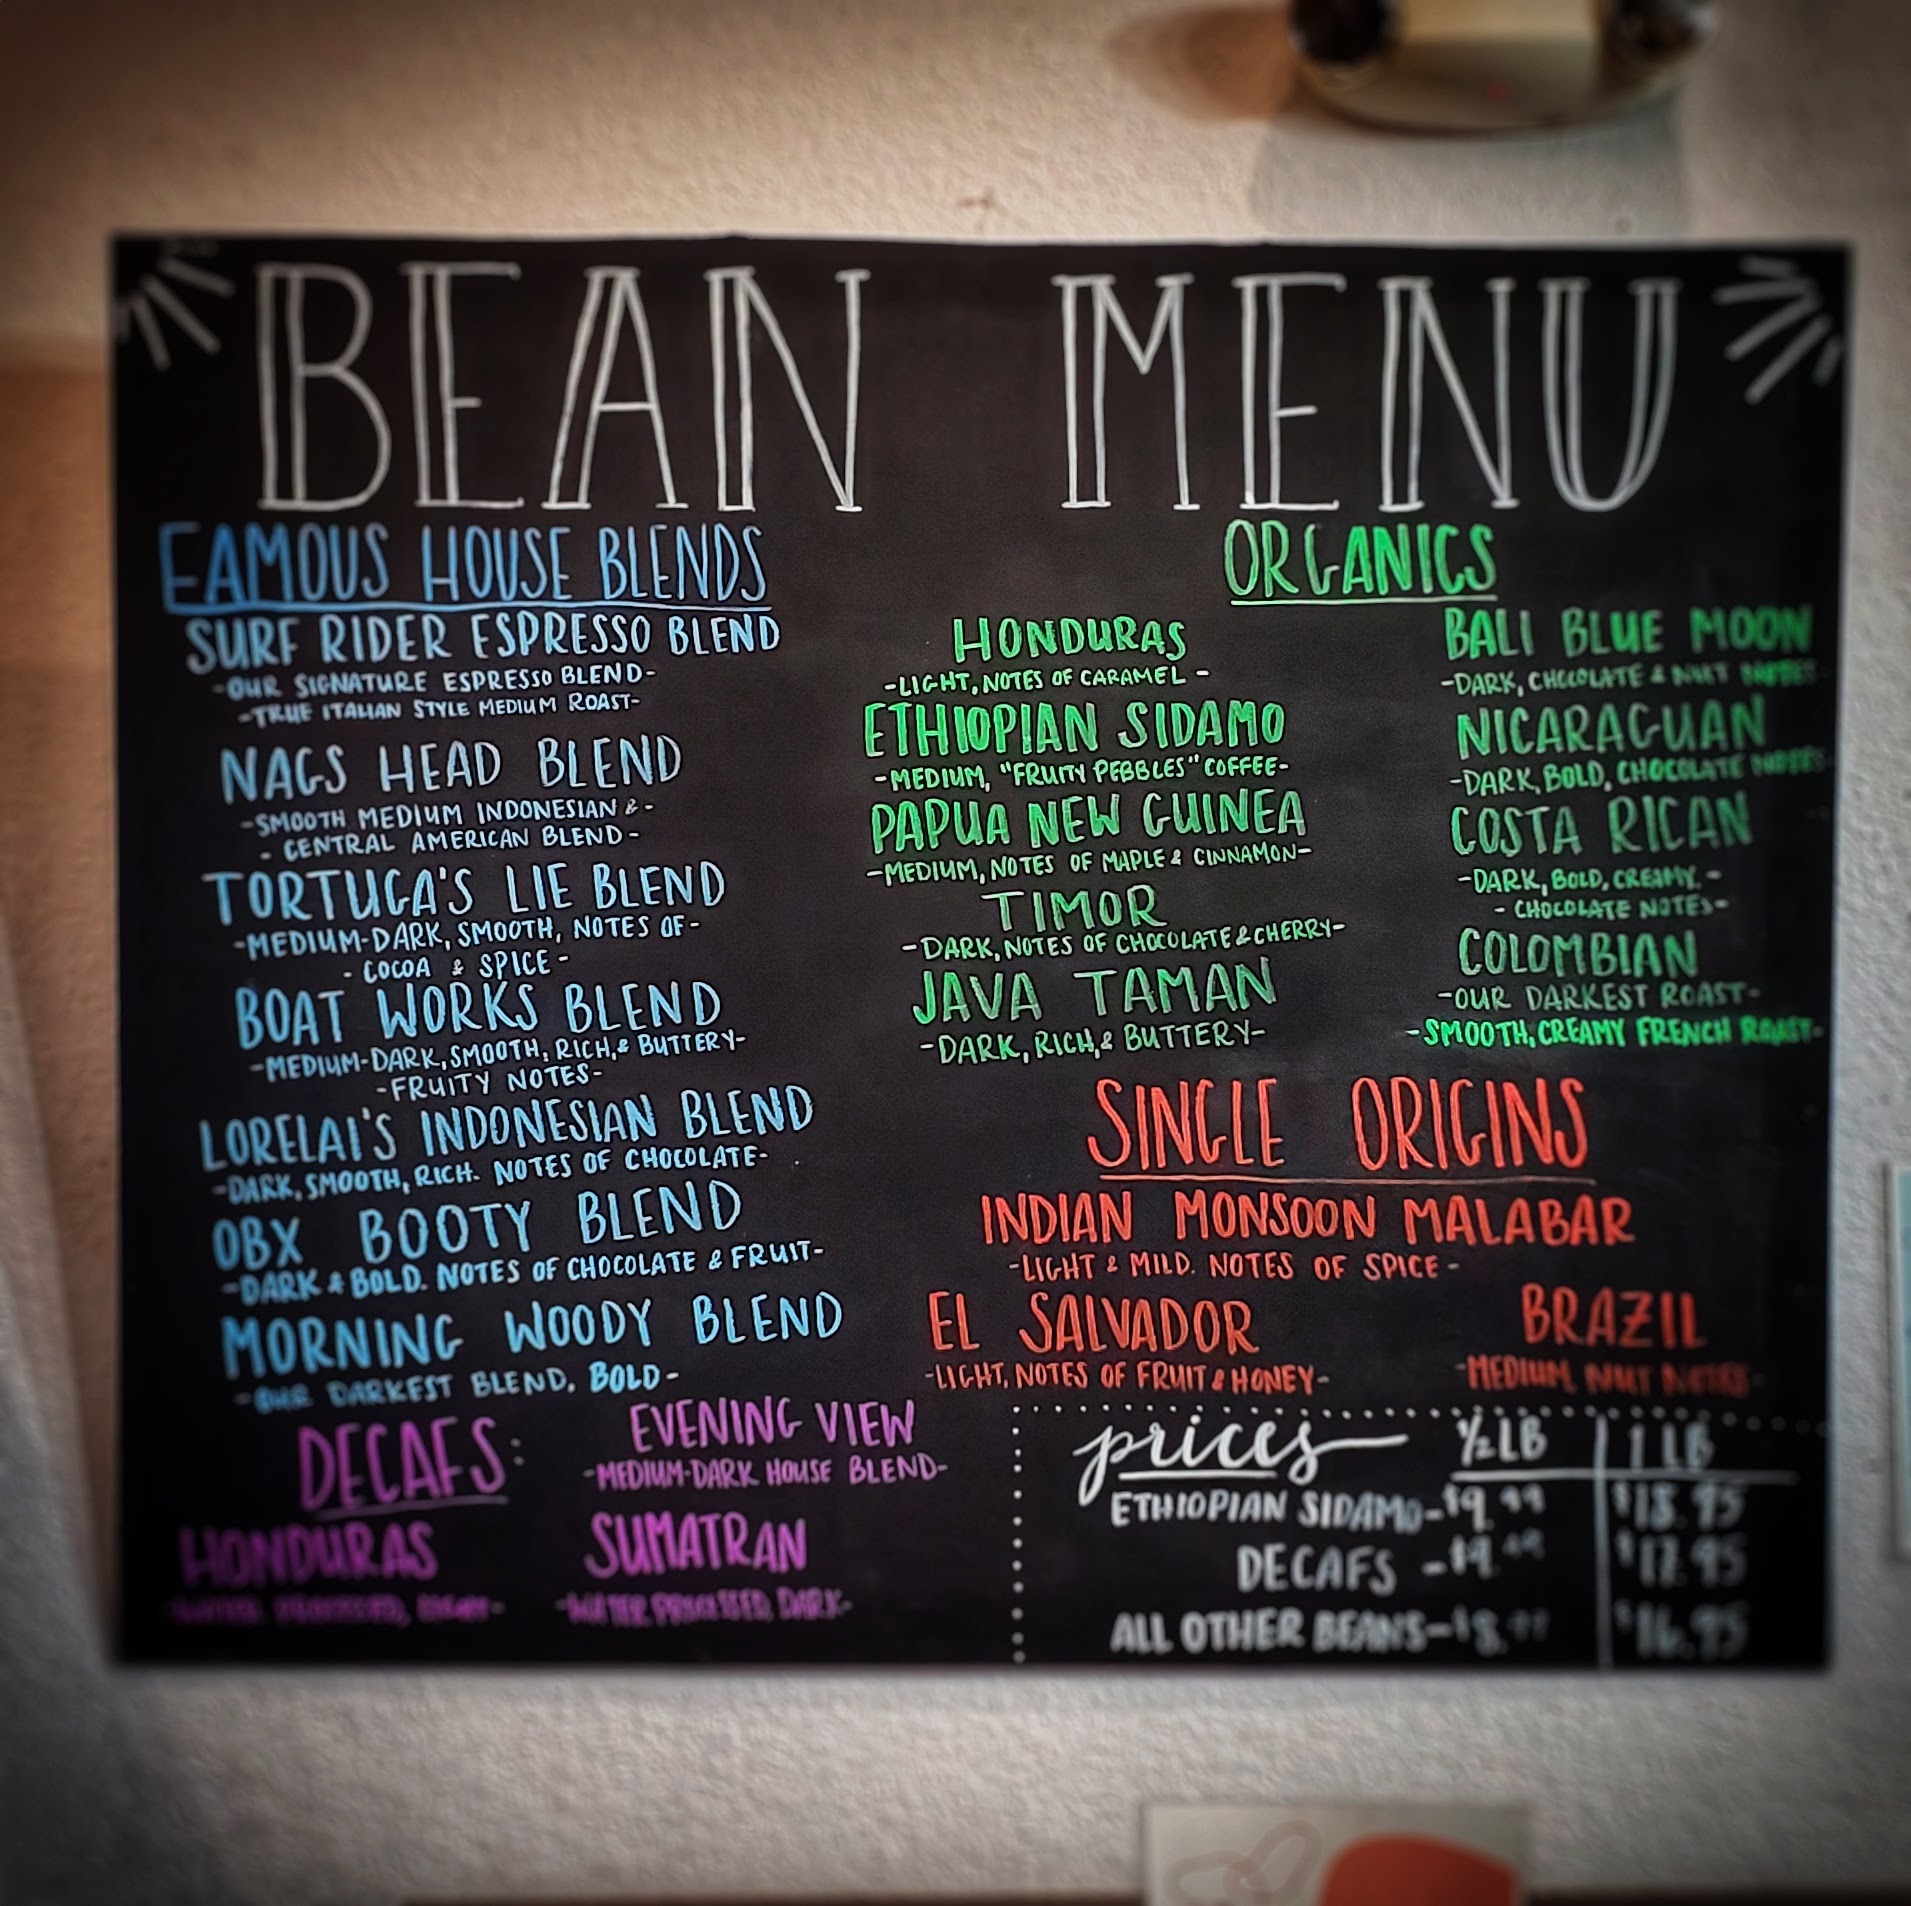 BEAN MENU
FAMOUS HOUSE BLENDS
SURF RIDER ESPRESSO BLEND
-OUR SIGNATURE ESPRESSO BLEND-
-TRUE ITALIAN STYLE MEDIUM ROAST-
NAGS HEAD BLEND
-SMOOTH MEDIUM INDONESIAN & -
- CENTRAL AMERICAN BLEND-
TORTUGA'S LIE BLEND
-MEDIUM-DARK, SMOOTH, NOTES OF-
- COCOA & SPICE -
BOAT WORKS BLEND
-MEDIUM-DARK, SMOOTH, RICH, & BUTTERY-
-FRUITY NOTES-
LORELAI'S INDONESIAN BLEND
-DARK, SMOOTH, RICH. NOTES OF CHOCOLATE-
OBX BOOTY BLEND
-DARK & BOLD. NOTES OF CHOCOLATE & FRUIT-
MORNING WOODY BLEND
-OUR DARKEST BLEND. BOLD-
ORGANICS
HONDURAS
-LIGHT, NOTES OF CARAMEL -
ETHIOPIAN SIDAMO
-MEDIUM, "FRUITY PEBBLES" COFFEE-
PAPUA NEW GUINEA
-MEDIUM, NOTES OF MAPLE & CINNAMON-
TIMOR
-DARK, NOTES OF CHOCOLATE & CHERRY-
JAVA TAMAN
-DARK, RICH, & BUTTERY-
BALI BLUE MOON
-DARK, CHOCOLATE & NUT NOTES-
NICARAGUAN
-DARK, BOLD, CHOCOLATE NOTES-
COSTA RICAN
-DARK, BOLD, CREAMY. -
- CHOCOLATE NOTES-
COLOMBIAN
-OUR DARKEST ROAST-
-SMOOTH, CREAMY FRENCH ROAST-
SINGLE ORIGINS
INDIAN MONSOON MALABAR
-LIGHT & MILD. NOTES OF SPICE -
EL SALVADOR
-LIGHT, NOTES OF FRUIT & HONEY-
BRAZIL
-MEDIUM, NUT NOTES-
DECAFS:
EVENING VIEW
-MEDIUM-DARK HOUSE BLEND-
HONDURAS
-WATER PROCESSED, LIGHT-
SUMATRAN
-WATER PROCESSED, DARK-
prices ½ LB 1 LB
ETHIOPIAN SIDAMO-$9.99 $18.95
DECAFS -$9.49 $17.95
ALL OTHER BEANS-$8.99 $16.95